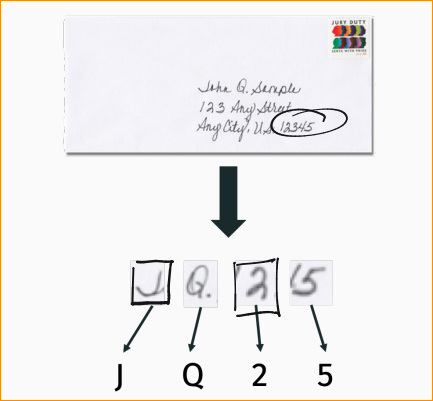 JURY DUTY
SERVE WITH PRIDE
John Q. Sample
123 Any Street
Any City, U.S. 12345
J Q. 2 5
J Q 2 5